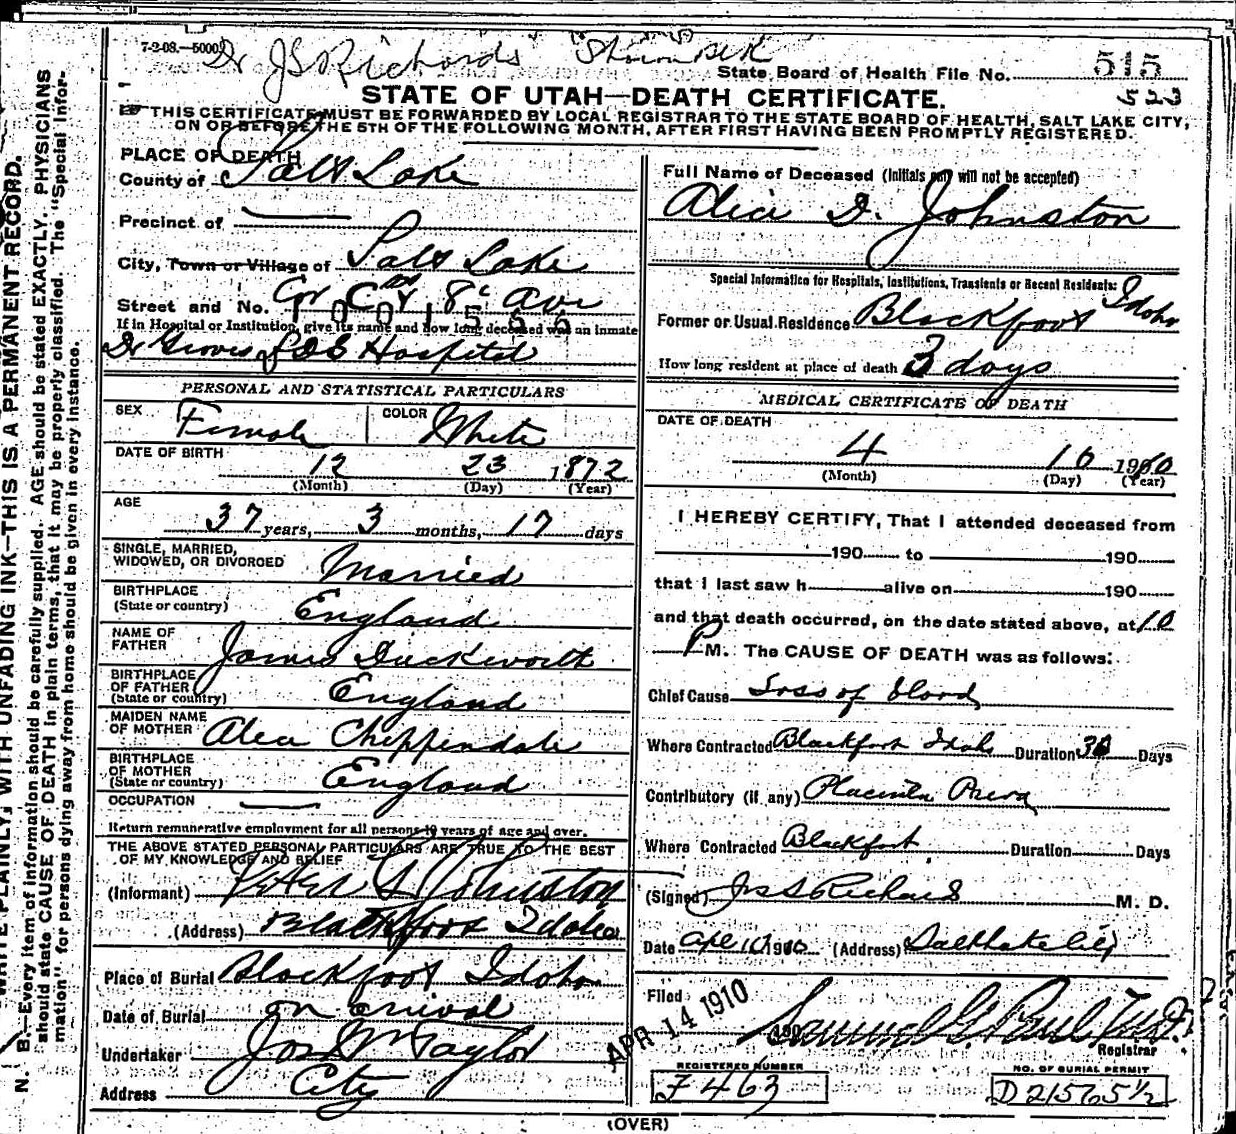 7-2-08.—5000
Dr J S Richards
State Board of Health File No. 515
522
STATE OF UTAH—DEATH CERTIFICATE.
THIS CERTIFICATE MUST BE FORWARDED BY LOCAL REGISTRAR TO THE STATE BOARD OF HEALTH, SALT LAKE CITY,
ON OR BEFORE THE 5TH OF THE FOLLOWING MONTH, AFTER FIRST HAVING BEEN PROMPTLY REGISTERED.
N. B.—Every item of information should be carefully supplied. AGE should be stated EXACTLY. PHYSICIANS
should state CAUSE OF DEATH in plain terms, that it may be properly classified. The "Special Infor-
mation" for persons dying away from home should be given in every instance.
WRITE PLAINLY, WITH UNFADING INK—THIS IS A PERMANENT RECORD.
PLACE OF DEATH
County of Salt Lake
Precinct of
City, Town or Village of Salt Lake
Street and No. Cor C & 8th Ave
If in Hospital or Institution, give its name and how long deceased was an inmate
Dr Groves LDS Hospital
PERSONAL AND STATISTICAL PARTICULARS
SEX Female COLOR White
DATE OF BIRTH
12 23 1872
(Month) (Day) (Year)
AGE
37 years, 3 months, 17 days
SINGLE, MARRIED,
WIDOWED, OR DIVORCED Married
BIRTHPLACE
(State or country) England
NAME OF
FATHER James Duckworth
BIRTHPLACE
OF FATHER
(State or country) England
MAIDEN NAME
OF MOTHER Alice Chippendale
BIRTHPLACE
OF MOTHER
(State or country) England
OCCUPATION
Return remunerative employment for all persons 10 years of age and over.
THE ABOVE STATED PERSONAL PARTICULARS ARE TRUE TO THE BEST
OF MY KNOWLEDGE AND BELIEF
(Informant) Peter G Johnston
(Address) Blackfoot Idaho
Place of Burial Blackfoot Idaho
Date of Burial on arival
Undertaker Jos Wm Taylor
Address City
Full Name of Deceased (Initials only will not be accepted)
Alice D. Johnston
Special Information for Hospitals, Institutions, Transients or Recent Residents:
Former or Usual Residence Blackfoot Idaho
How long resident at place of death 3 days
MEDICAL CERTIFICATE OF DEATH
DATE OF DEATH
4 10 1910
(Month) (Day) (Year)
I HEREBY CERTIFY, That I attended deceased from
190 to 190
that I last saw h alive on 190
and that death occurred, on the date stated above, at 10
P M. The CAUSE OF DEATH was as follows:
Chief Cause Loss of blood
Where Contracted Blackfoot Idaho Duration Days
Contributory (if any) Placenta Previa
Where Contracted Blackfoot Duration Days
(Signed) Jos S Richards M. D.
Date Apr 1910 (Address) Salt Lake City
Filed APR 14 1910 190 Samuel G. Paul M.D.
Registrar
REGISTERED NUMBER
F 463
NO. OF BURIAL PERMIT
D 21565½
(OVER)